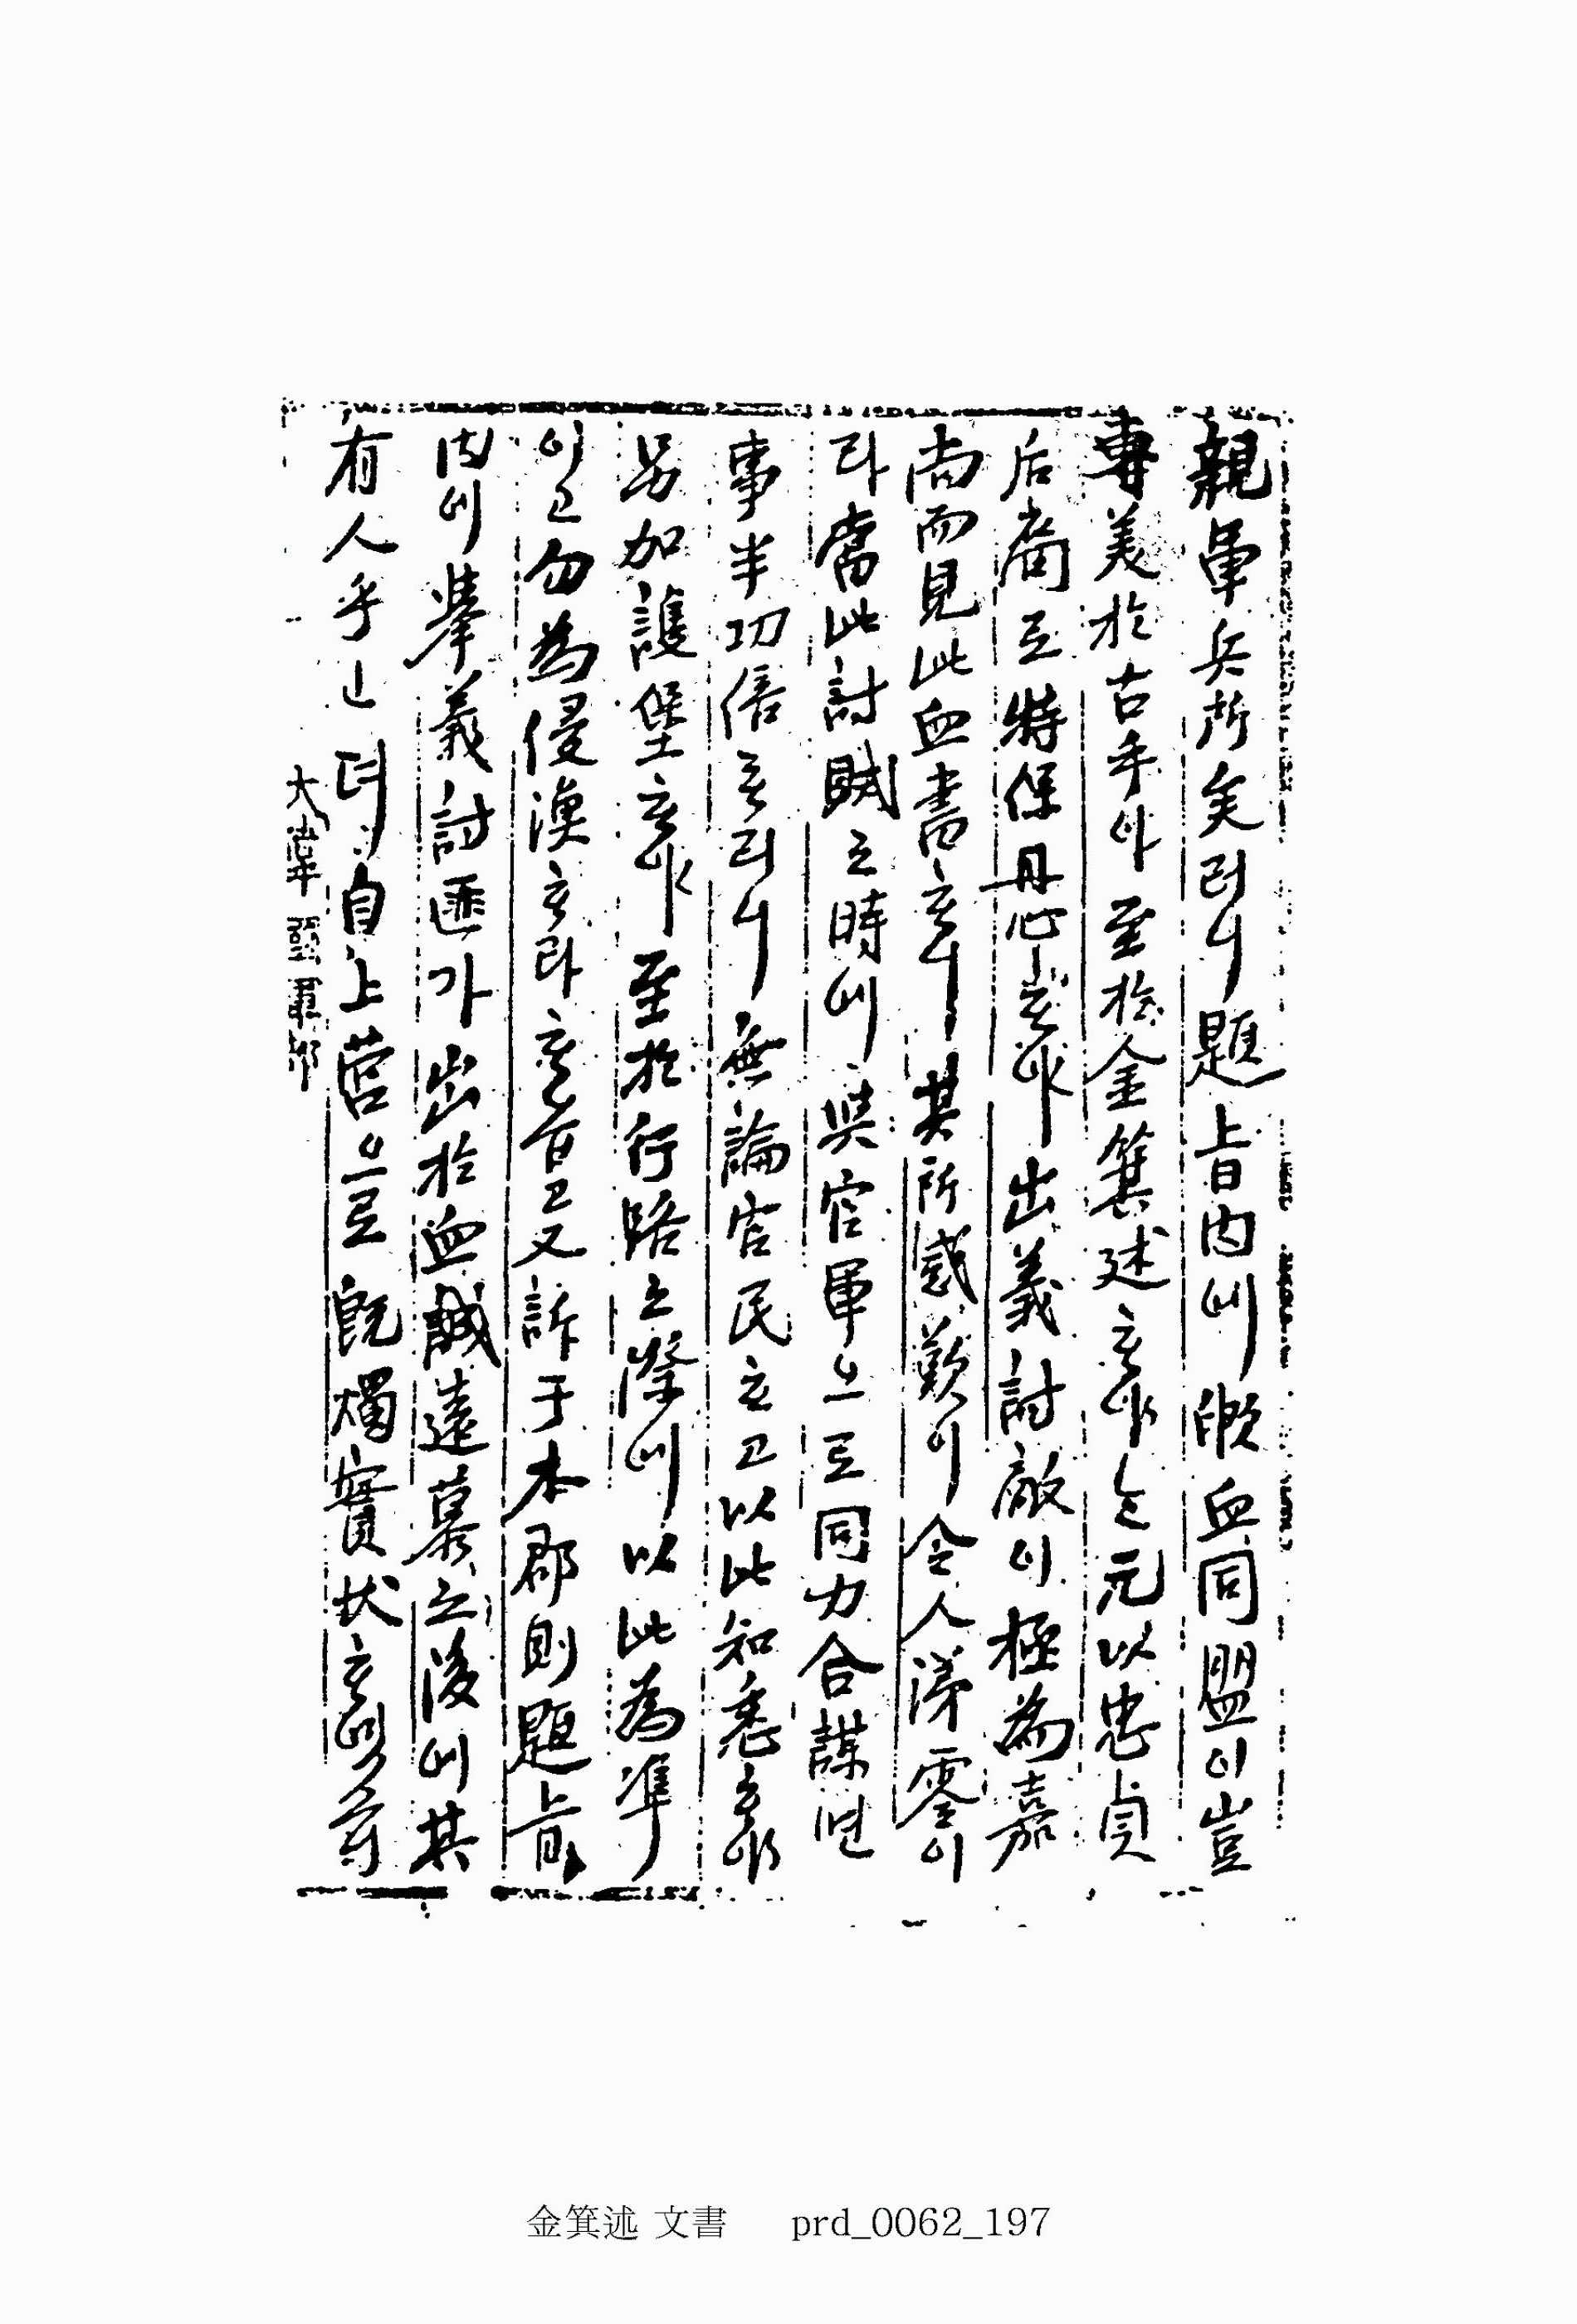 親軍兵所矣러니題旨內에歃血同盟이豈
專美於古乎아至於金箕述ᄒᆞ야ᄂᆞᆫ元以忠貞
后裔로特保丹心ᄒᆞ야出義討敵이極爲嘉
尙而見此血書ᄒᆞ니其所感歎이令人涕零이
라當此討賊之時에與官軍으로同力合謀면
事半功倍ᄒᆞ리니無論官民ᄒᆞ고以此知悉ᄒᆞ야
另加護堡ᄒᆞ야至於行路之際에以此爲準
이고勿爲侵漁ᄒᆞ라ᄒᆞ엿고又訴于本郡則題旨
內에擧義討匪가出於血誠遠慕之後에其
有人乎ᅟᅵᆫ뎌自上營으로旣燭實狀ᄒᆞ
大韓國軍部
金箕述 文書 prd_0062_197